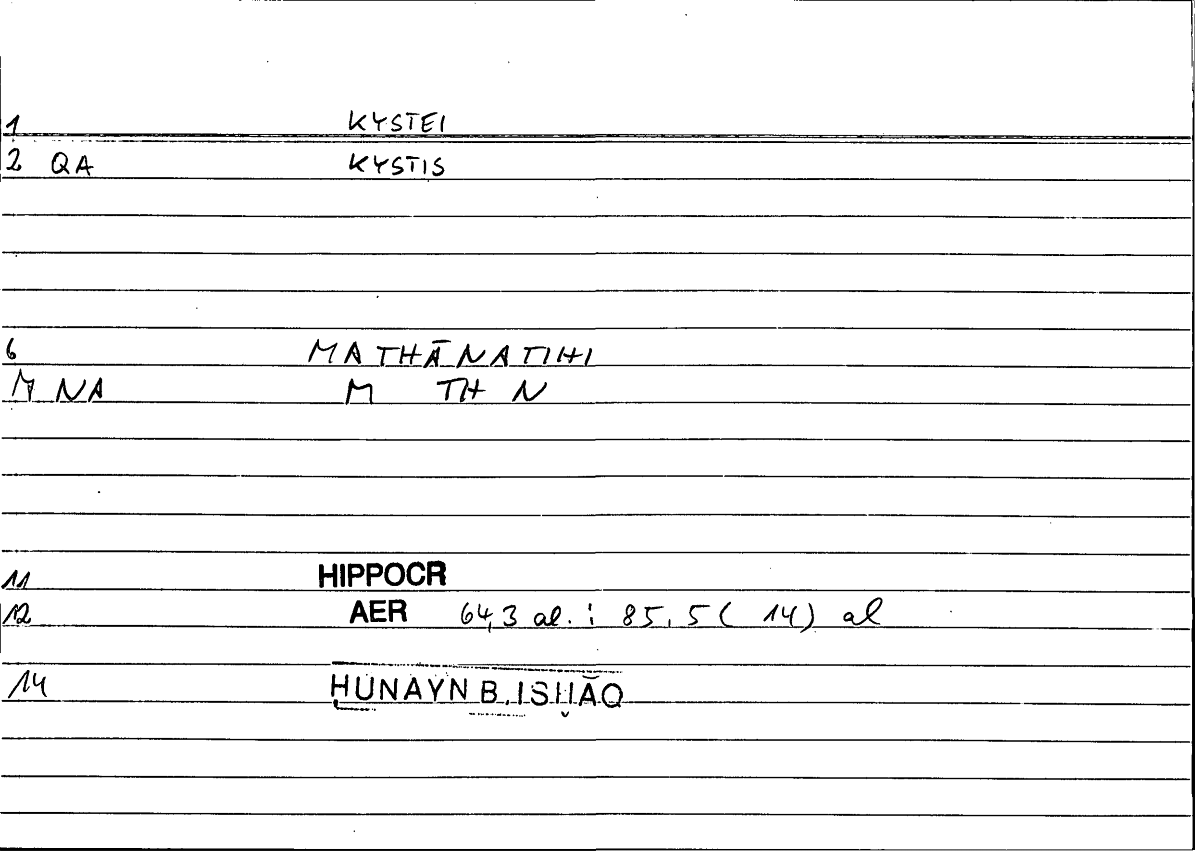 1 KYSTEI
2 QA KYSTIS
6 MATHĀNATIHI
M NA M TH N
11 HIPPOCR
12 AER 64,3 al. ; 85,5 ( 14) al
14 ḤUNAYN B. ISḤĀQ